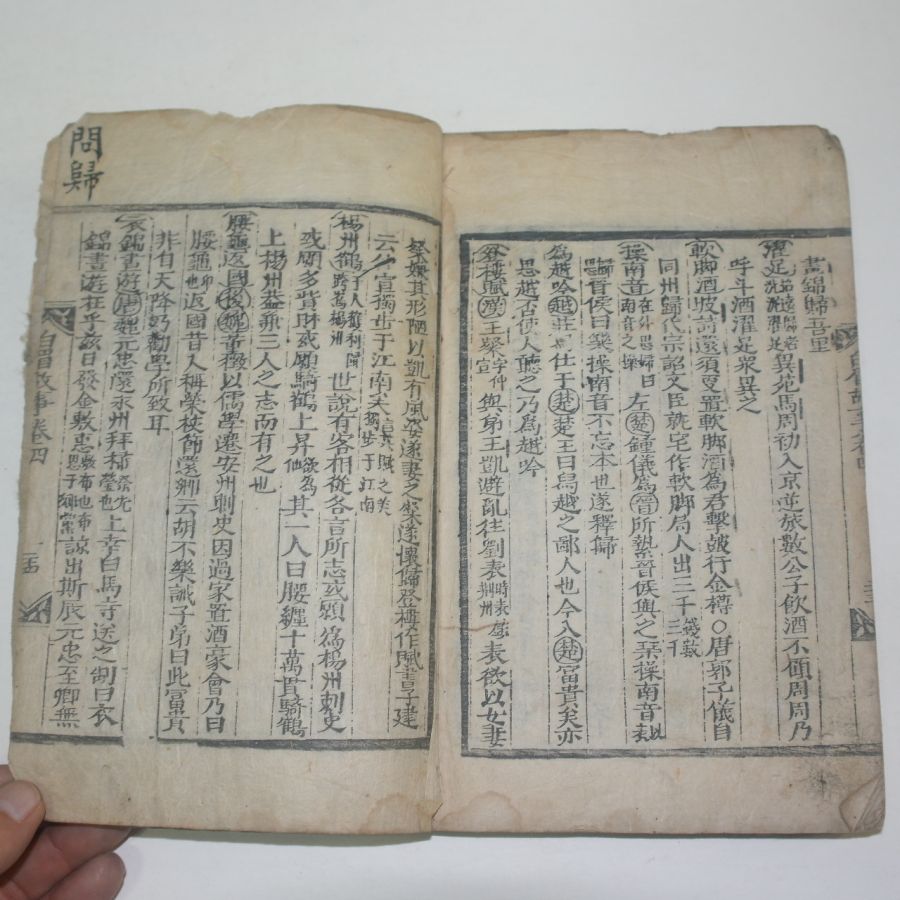 畫錦歸吾里
濯足異苑馬周初入京逆旅數公子飮酒不顧周周乃
呼斗酒濯足衆異之
軟脚酒坡詩還須更置軟脚酒爲君擊皷行金樽○唐郭子儀自
同州歸代宗詔文臣就宅作軟脚局人出三千
操南音在外思歸曰南音之操左楚鍾儀爲晉所縶晉侯與之琴操南音
晉侯曰樂操南音不忘本也遂釋歸
爲越吟越莊舃仕于楚楚王曰舃越之鄙人也今入楚富貴矣亦
思越否使人聽之乃爲越吟
登樓賦漢王粲字仲宣與弟王凱避亂往劉表表欲以女妻
粲嫌其形陋以凱有風姿遂妻之粲遂懷歸登樓作賦曺子建
云公宣獨步于江南矣言其賦之美獨步于江南
楊州鶴世說有客相從各言所志或願爲楊州刺史
或願多貲財或願騎鶴上昇欲爲仙其一人曰腰纏十萬貫騎鶴
上楊州益兼三人之志而有之也
腰龜返國後魏董徵以儒學遷安州刺史因過家置酒高會乃曰
腰龜印也返國昔人稱榮杖節還鄕云胡不樂誡子弟曰此富貴
非自天降乃勤學所致耳
衣錦晝遊唐魏元忠還永州拜掃上幸白馬寺送之制曰衣
錦晝遊在乎該日發金敷惠諒出斯辰元忠至鄕無
問歸
卷四